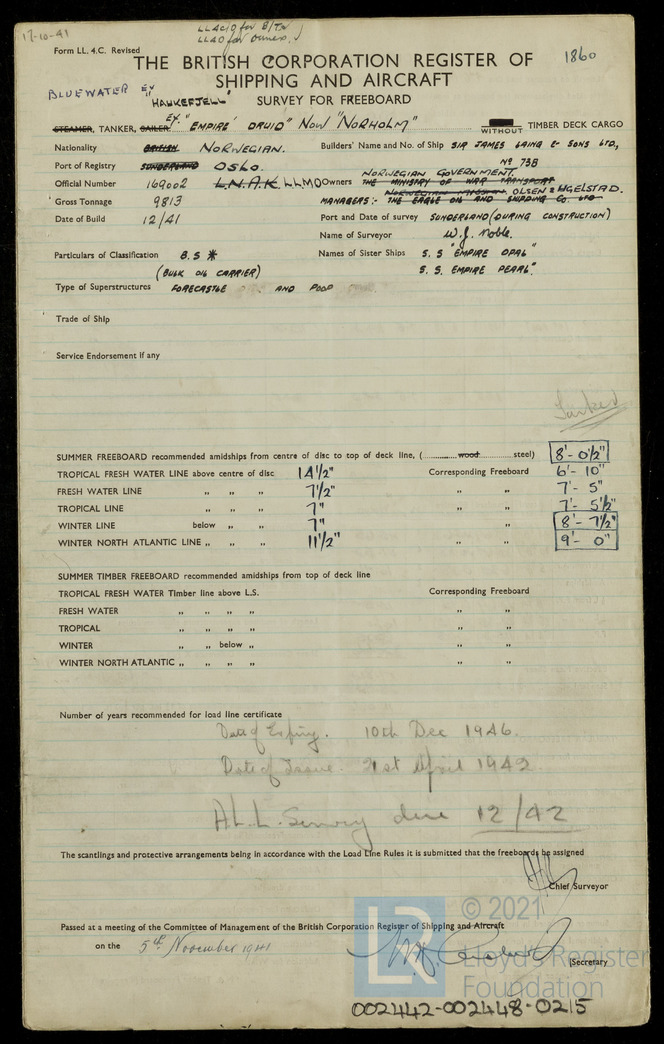 17-10-41
Form LL. 4.C. Revised
1860
THE BRITISH CORPORATION REGISTER OF
SHIPPING AND AIRCRAFT
BLUEWATER EX
"HAUKEFJELL"
SURVEY FOR FREEBOARD
STEAMER, TANKER, SAILER EX. "EMPIRE DRUID" NOW "NORHOLM" WITHOUT TIMBER DECK CARGO
Nationality BRITISH NORWEGIAN. Builders' Name and No. of Ship SIR JAMES LAING & SONS LTD.,
Port of Registry SUNDERLAND OSLO. Nº 738
NORWEGIAN GOVERNMENT.
Official Number 169002 L.N.A.K. L.L.M.O Owners THE MINISTRY OF WAR TRANSPORT
NORWEGIAN MISSION. OLSEN & UGELSTAD.
Gross Tonnage 9813 MANAGERS:- THE EAGLE OIL AND SHIPPING CO LTD
Date of Build 12/41 Port and Date of survey SUNDERLAND (DURING CONSTRUCTION)
Name of Surveyor W.J. Noble.
Particulars of Classification B.S * Names of Sister Ships S.S "EMPIRE OPAL"
(BULK OIL CARRIER) S.S. EMPIRE PEARL"
Type of Superstructures FORECASTLE AND POOP
Trade of Ship
Service Endorsement if any
SUMMER FREEBOARD recommended amidships from centre of disc to top of deck line, (............wood............steel) 8'- 0½"
TROPICAL FRESH WATER LINE above centre of disc 14½" Corresponding Freeboard 6'- 10"
FRESH WATER LINE ,, ,, ,, 7½" ,, ,, 7'- 5"
TROPICAL LINE ,, ,, ,, 7" ,, ,, 7'- 5½"
WINTER LINE below ,, ,, 7" ,, 8'- 7½"
WINTER NORTH ATLANTIC LINE ,, ,, ,, 11½" ,, ,, 9'- 0"
SUMMER TIMBER FREEBOARD recommended amidships from top of deck line
TROPICAL FRESH WATER Timber line above L.S. Corresponding Freeboard
FRESH WATER ,, ,, ,, ,, ,, ,,
TROPICAL ,, ,, ,, ,, ,, ,,
WINTER ,, ,, below ,, ,, ,,
WINTER NORTH ATLANTIC ,, ,, ,, ,, ,, ,,
Number of years recommended for load line certificate
Date of Expiry. 10th Dec 1946.
Date of Issue. 21st April 1942.
A.L.L. Survey due 12/42
The scantlings and protective arrangements being in accordance with the Load Line Rules it is submitted that the freeboards be assigned
Chief Surveyor
© 2021
Passed at a meeting of the Committee of Management of the British Corporation Register of Shipping and Aircraft
on the 5th November 1941
LR
Lloyd's Register
Foundation
Secretary
002442-002448-0215